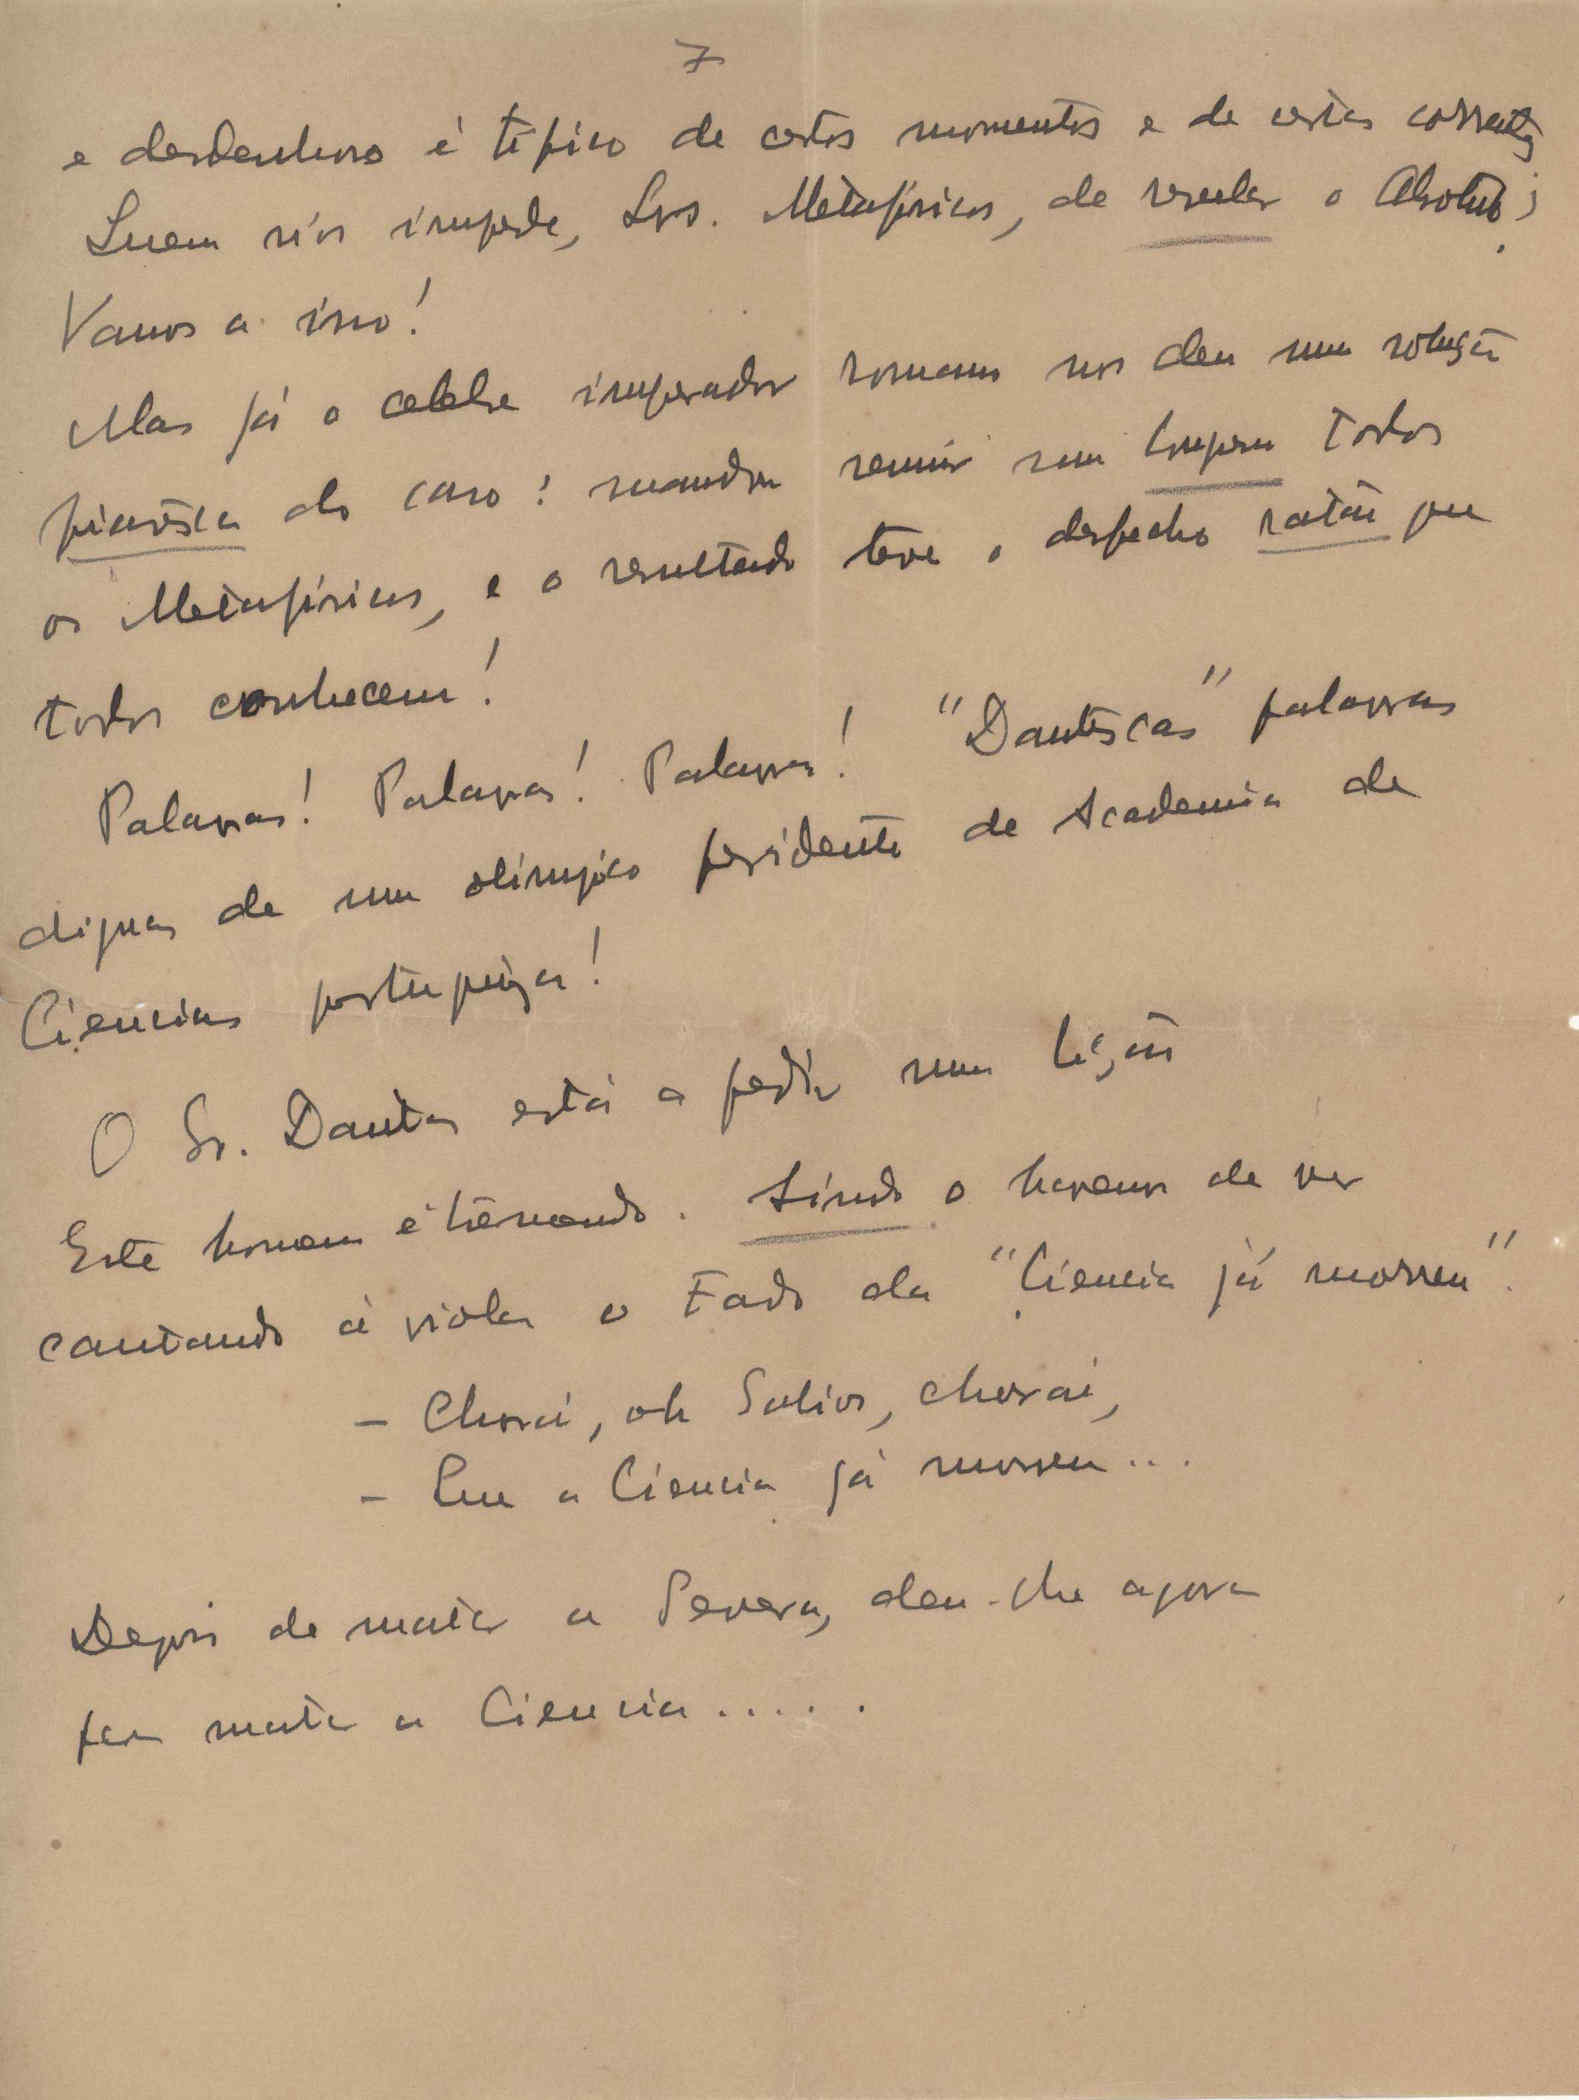 7
e desdenhoso é típico de certos momentos e de certas correntes
Quem vos impede, Srs. Metafísicos, de revelar o Absoluto?
Vamos a isso!
Mas já o celebre imperador romano nos deu uma solução
picaresca do caso: mandou reunir num Congresso todos
os Metafísicos, e o resultado teve o desfecho ratão que
todos conhecem!
Palavras! Palavras! Palavras! "Dantescas" palavras
dignas de um olímpico presidente de Academia de
Ciencias portuguesa!
O Sr. Dantas está a pedir uma lição
Este homem é tremendo. Ainda o havemos de ver
cantando à viola o Fado da "Ciencia já morreu".
- Chorai, oh Sabios, chorai,
- Que a Ciencia já morreu...
Depois de matar a Severa, deu-lhe agora
para matar a Ciencia.....